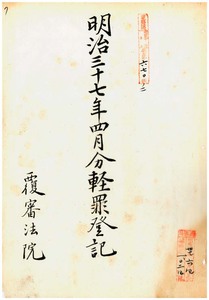 明治三十七年四月分軽罪登記
覆審法院